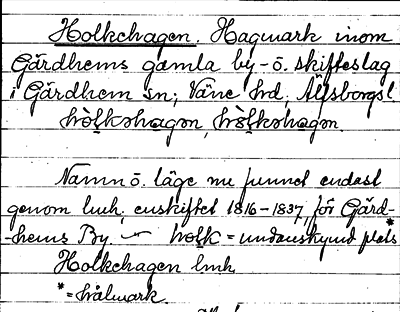 Holkehagen. Hagmark inom
Gärdhems gamla by- o. skifteslag
i Gärdhem sn; Väne hrd, Älfsborgs l.
hòlkəhagən, hòlkəhagən.
Namn o. läge nu funnet endast
genom lmh, enskiftet 1816-1837, för Gärd-
-hems By. — holk = undanskymd plats*
Holkehagen lmh
*= hålmark